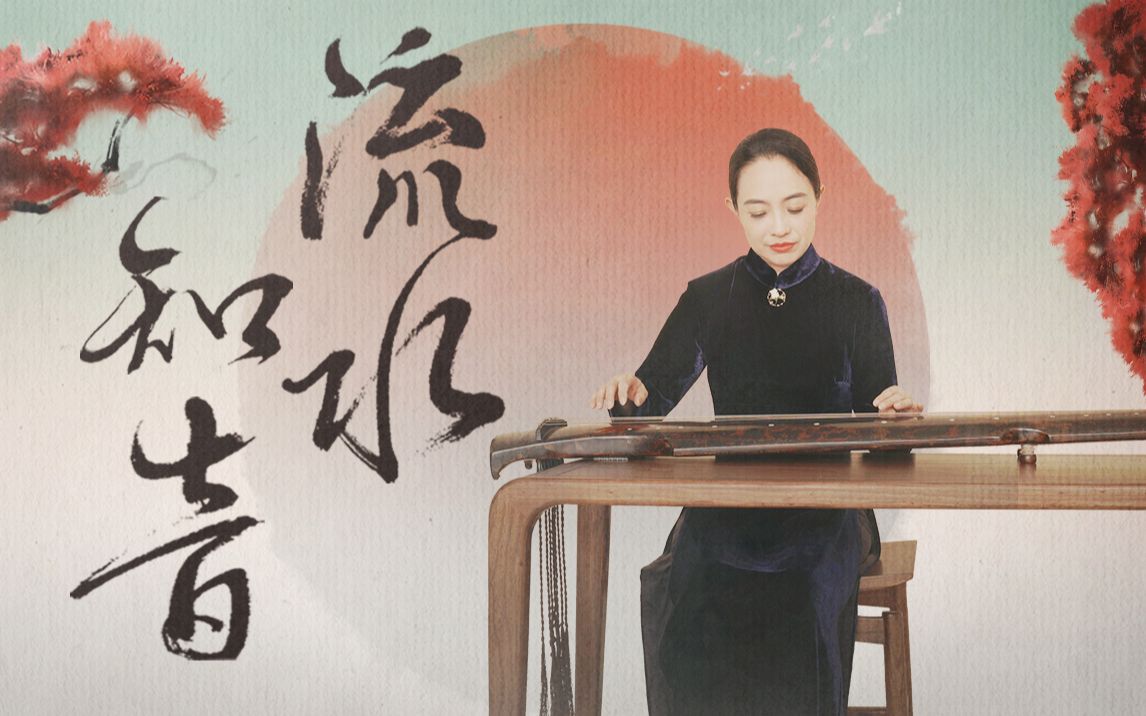 流水
知音